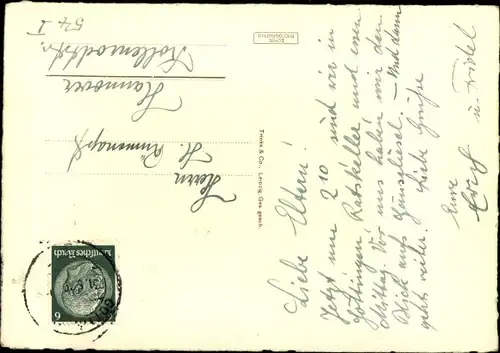 Liebe Eltern!
Jetzt um 2 10 sind wir in
Göttingen Ratskeller und essen
Mittag. Vor uns haben wir den
Blick aufs Gänseliesel. – Und dann
geht weiter. Liebe Grüße
Eure
u. Friedel
ECHTE
PHOTOGRAPHIE
Trinks & Co., Leipzig. Ges. gesch.
Herrn
H.
Hannover
54 I
Deutsches Reich
6